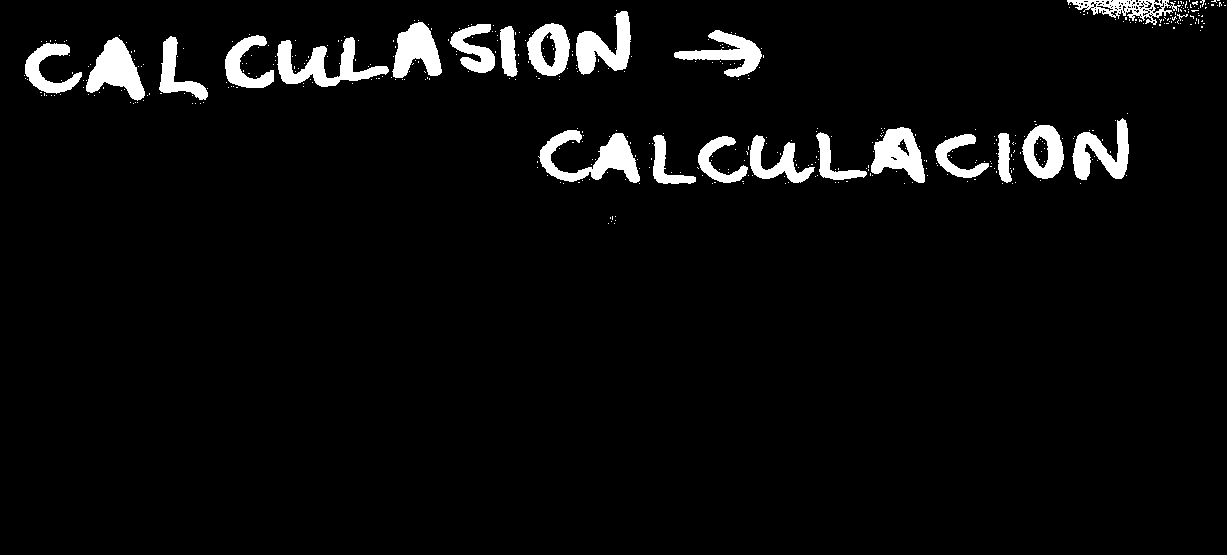 CALCULASION →
CALCULACION